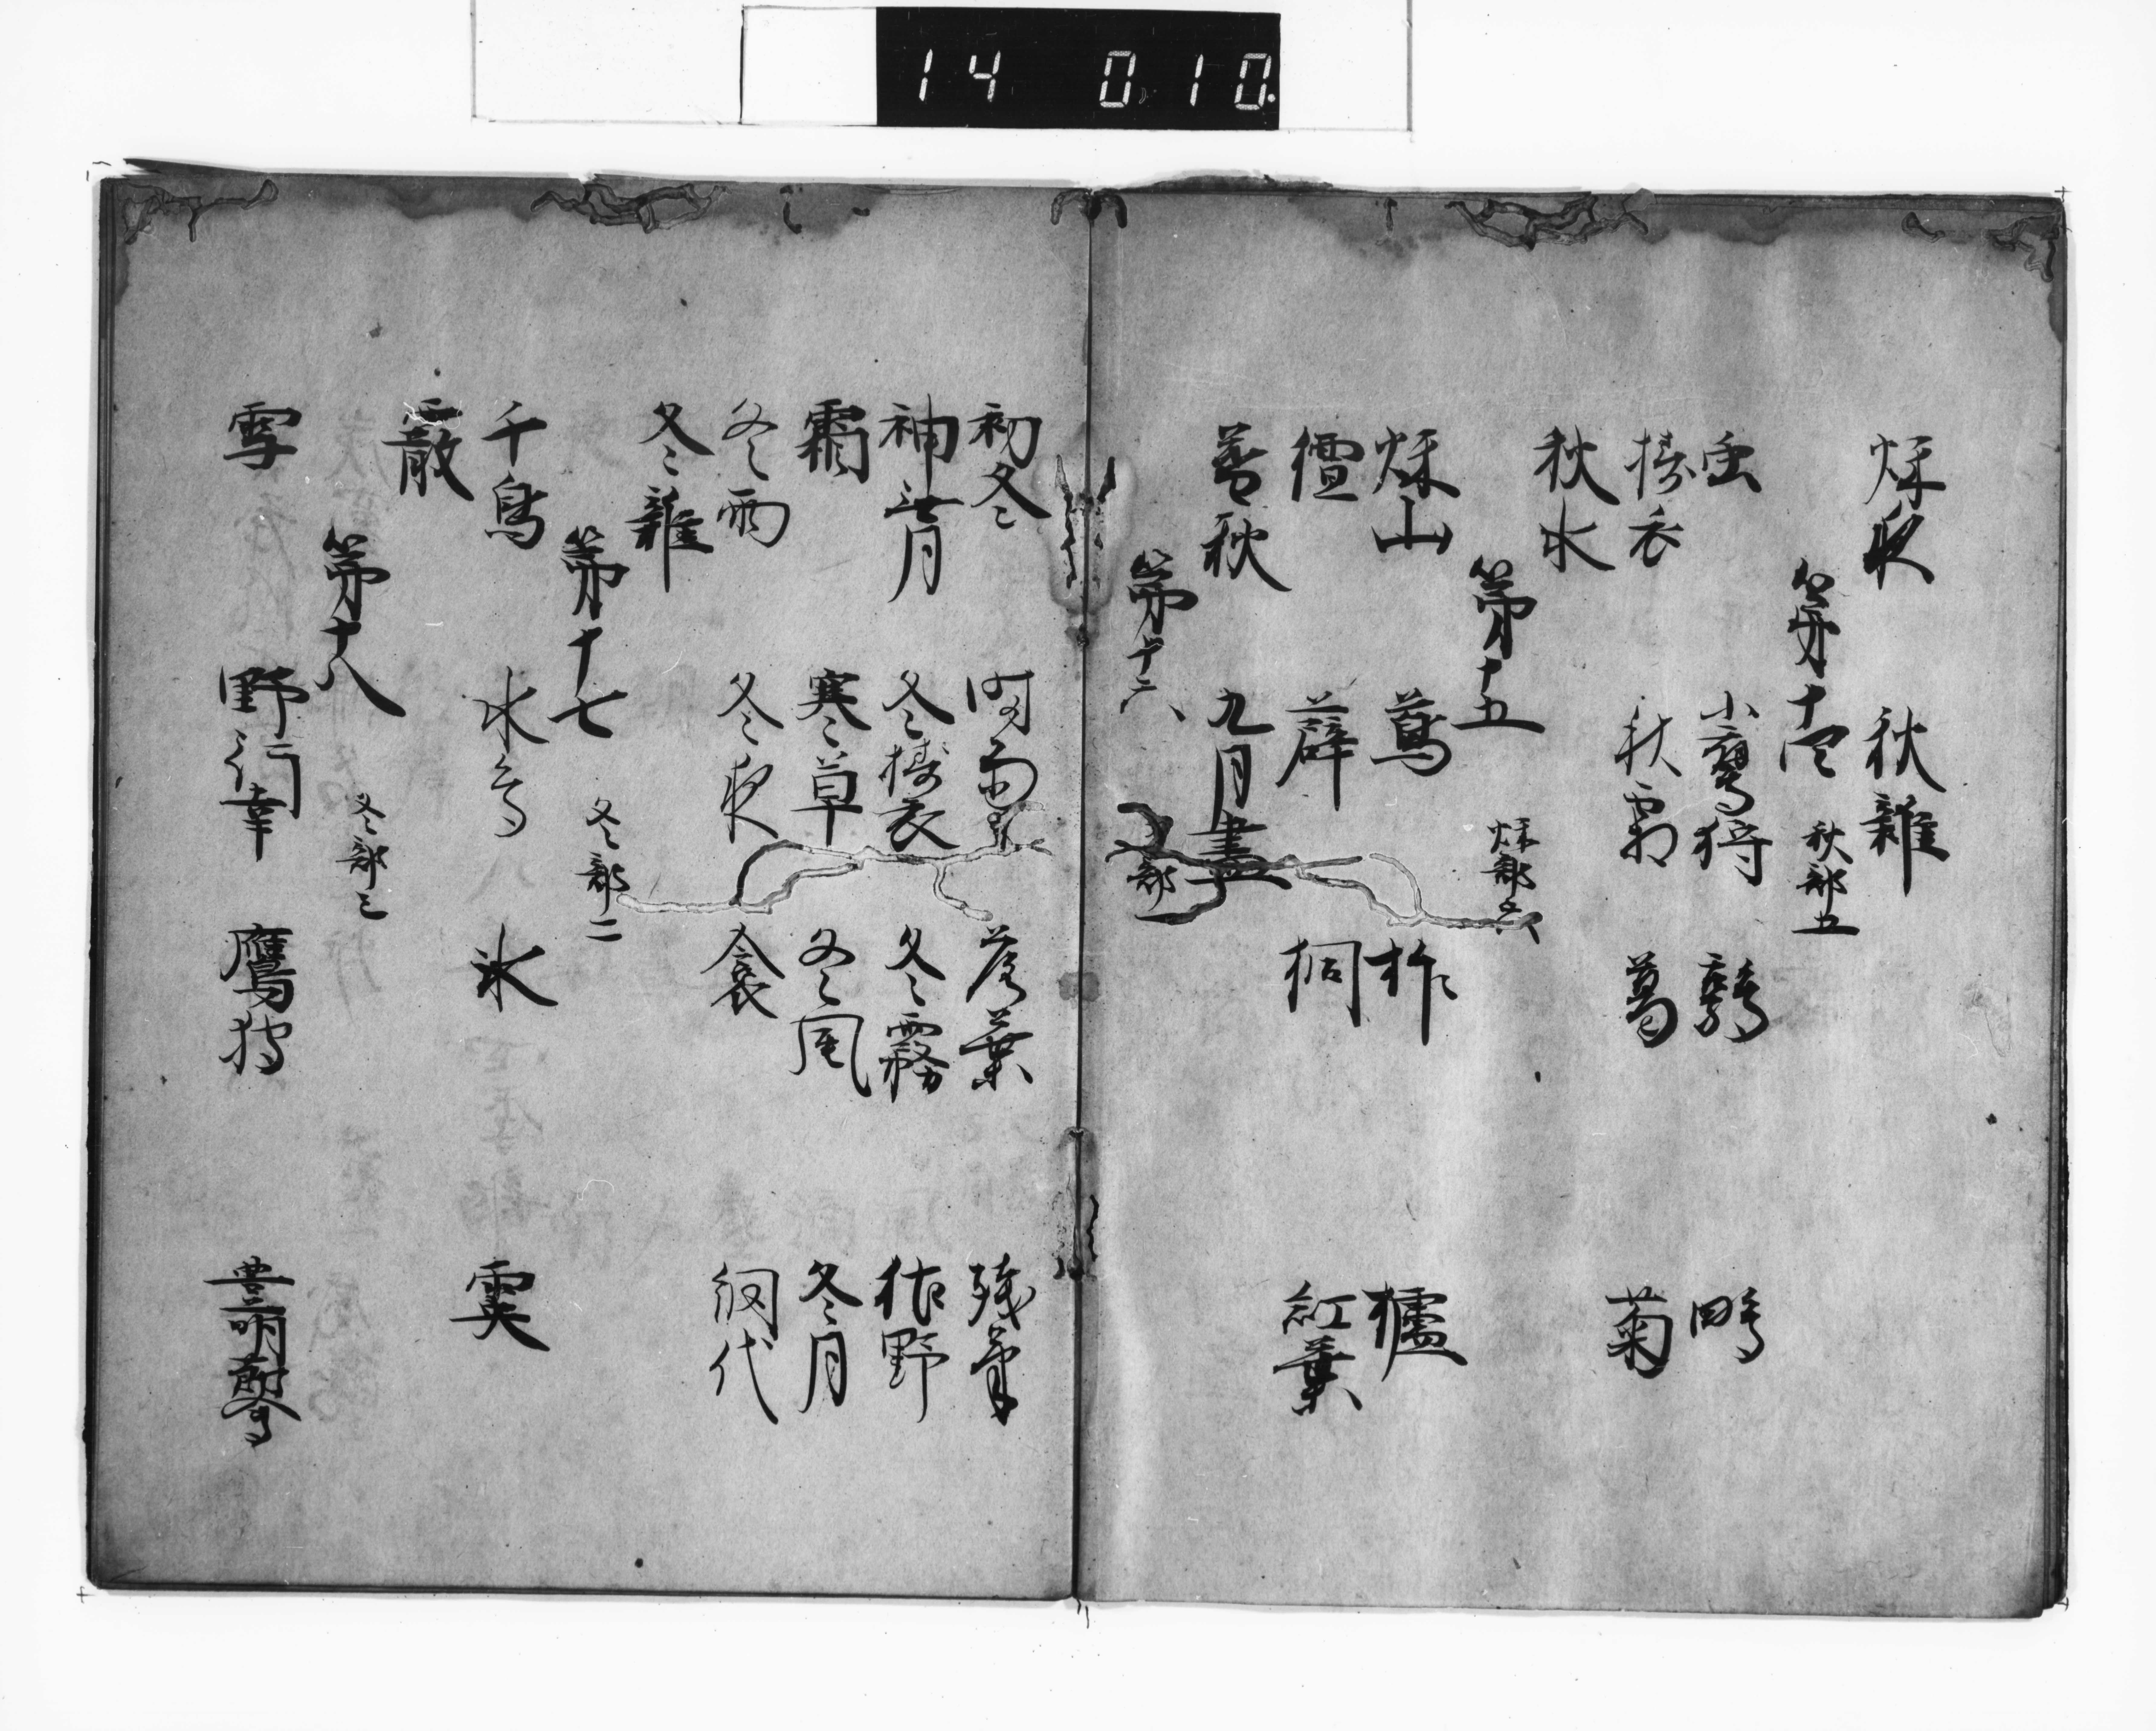 14 0 10
秋夜 秋雑
第十四 秋部五
虫 小鷹狩 鶉 鴫
擣衣 秋霜 葛 菊
秋水
第十五 秋部六
秋山 蔦 柞 櫨
檀 薜 桐 紅葉
暮秋 九月盡
第十六 部
初冬 時雨 落葉 残菊
神無月 冬擣衣 冬霧 枯野
霜 寒草 冬風 冬月
冬雨 冬夜 衾 網代
冬雑
第十七 冬部二
千鳥 水鳥 氷 霙
霰
第十八 冬部三
雪 野行幸 鷹狩 豊明